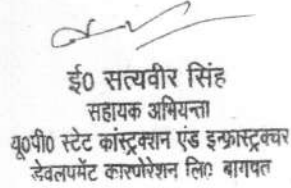 ई0 सत्यवीर सिंह
सहायक अभियन्ता
यू0पी0 स्टेट कांस्ट्रक्शन एंड इन्फ्रास्ट्रक्चर
डेवलपमेंट कारपोरेशन लि0 बागपत